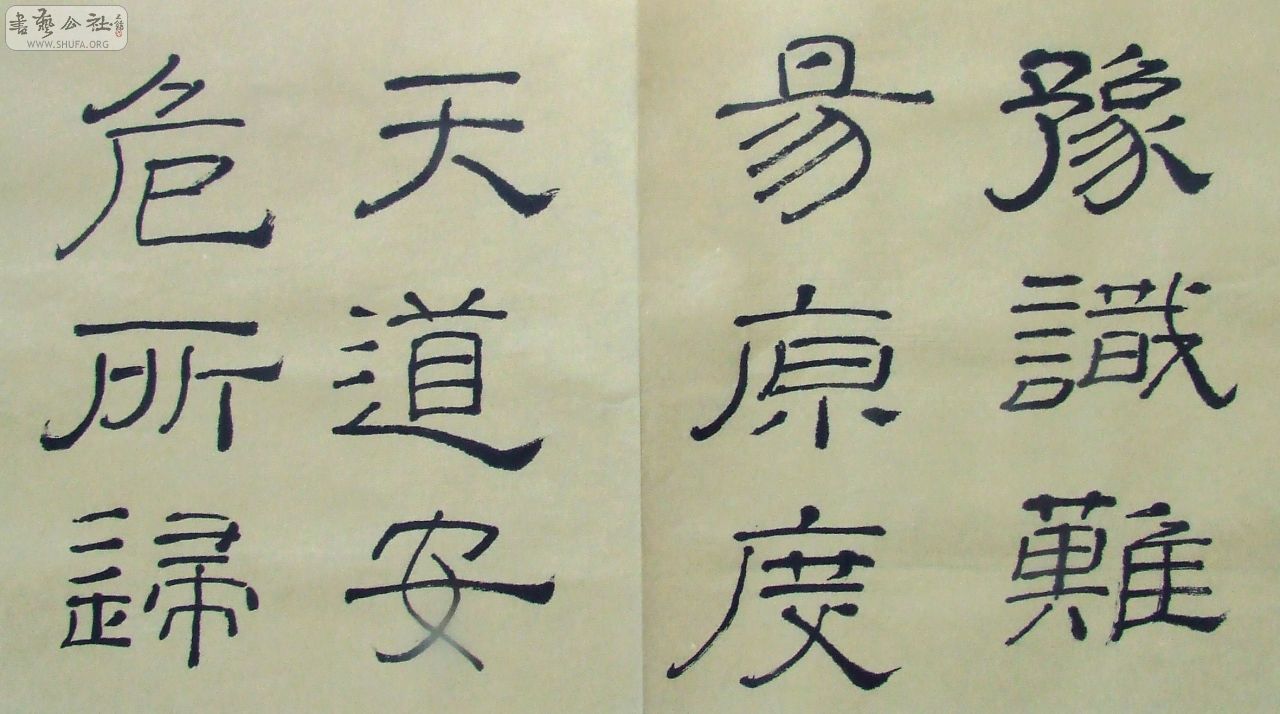 書藝公社
WWW.SHUFA.ORG
豫識難
易原度
天道安
危所歸